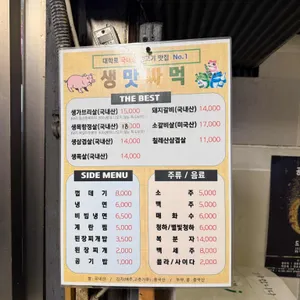 대학로 No.1
생맛짜먹
THE BEST
생가브리살(국내산) 15,000
돼지갈비(국내산) 14,000
생목항정살(국내산)
소갈비살(미국산) 17,000
생삼겹살(국내산) 14,000
칠레산삼겹살 11,000
생목살(국내산) 14,000
SIDE MENU
껍데기 8,000
냉면 6,000
비빔냉면 6,500
계란찜 5,000
된장찌개밥 3,500
된장찌개 2,000
공기밥 1,000
주류 / 음료
소주 5,000
맥주 5,000
매화수 6,000
청하/별빛청하 6,000
복분자 14,000
백세주 8,000
콜라/사이다 2,000